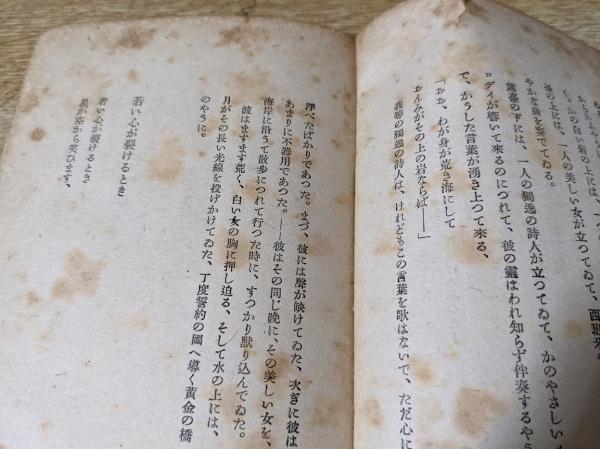 臺の上には、一人の美しい女が立つてゐて、西班牙
やかな曲を奏でてゐる。
露臺の下には、一人の獨逸の詩人が立つてゐて、かのやさしい
ロデイが響いて來るのにつれて、彼の靈はわれ知らず伴奏するやう
で、かうした言葉が湧き上つて來る、
「おお、わが身が荒き海にして
おんみがその上の岩ならば――」
我等の獨逸の詩人は、けれどもこの言葉を歌はないで、ただ心に
浮べたばかりであつた。まづ、彼には聲が缺けてゐた、次ぎに彼は
あまりに不器用であつた。――彼はその同じ晩に、その美しい女を、
海岸に沿うて散歩につれて行つた時に、すつかり默り込んでゐた。
波はますます荒く、白い女の胸に押し迫る、そして水の上には、
月がその長い光線を投げかけてゐた、丁度誓約の國へ導く黃金の橋
のやうに。
若い心が裂けるとき
若い心が裂けるとき
星が空から笑ひます、